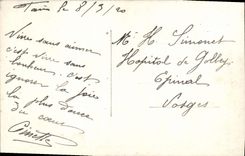 Paris le 8/3/20
Vivre sans aimer
c'est vivre sans
bonheur, c'est
ignorer la joie
la plus douce
du cœur
M. H Simonet
Hopital de Golbey
Epinal
Vosges